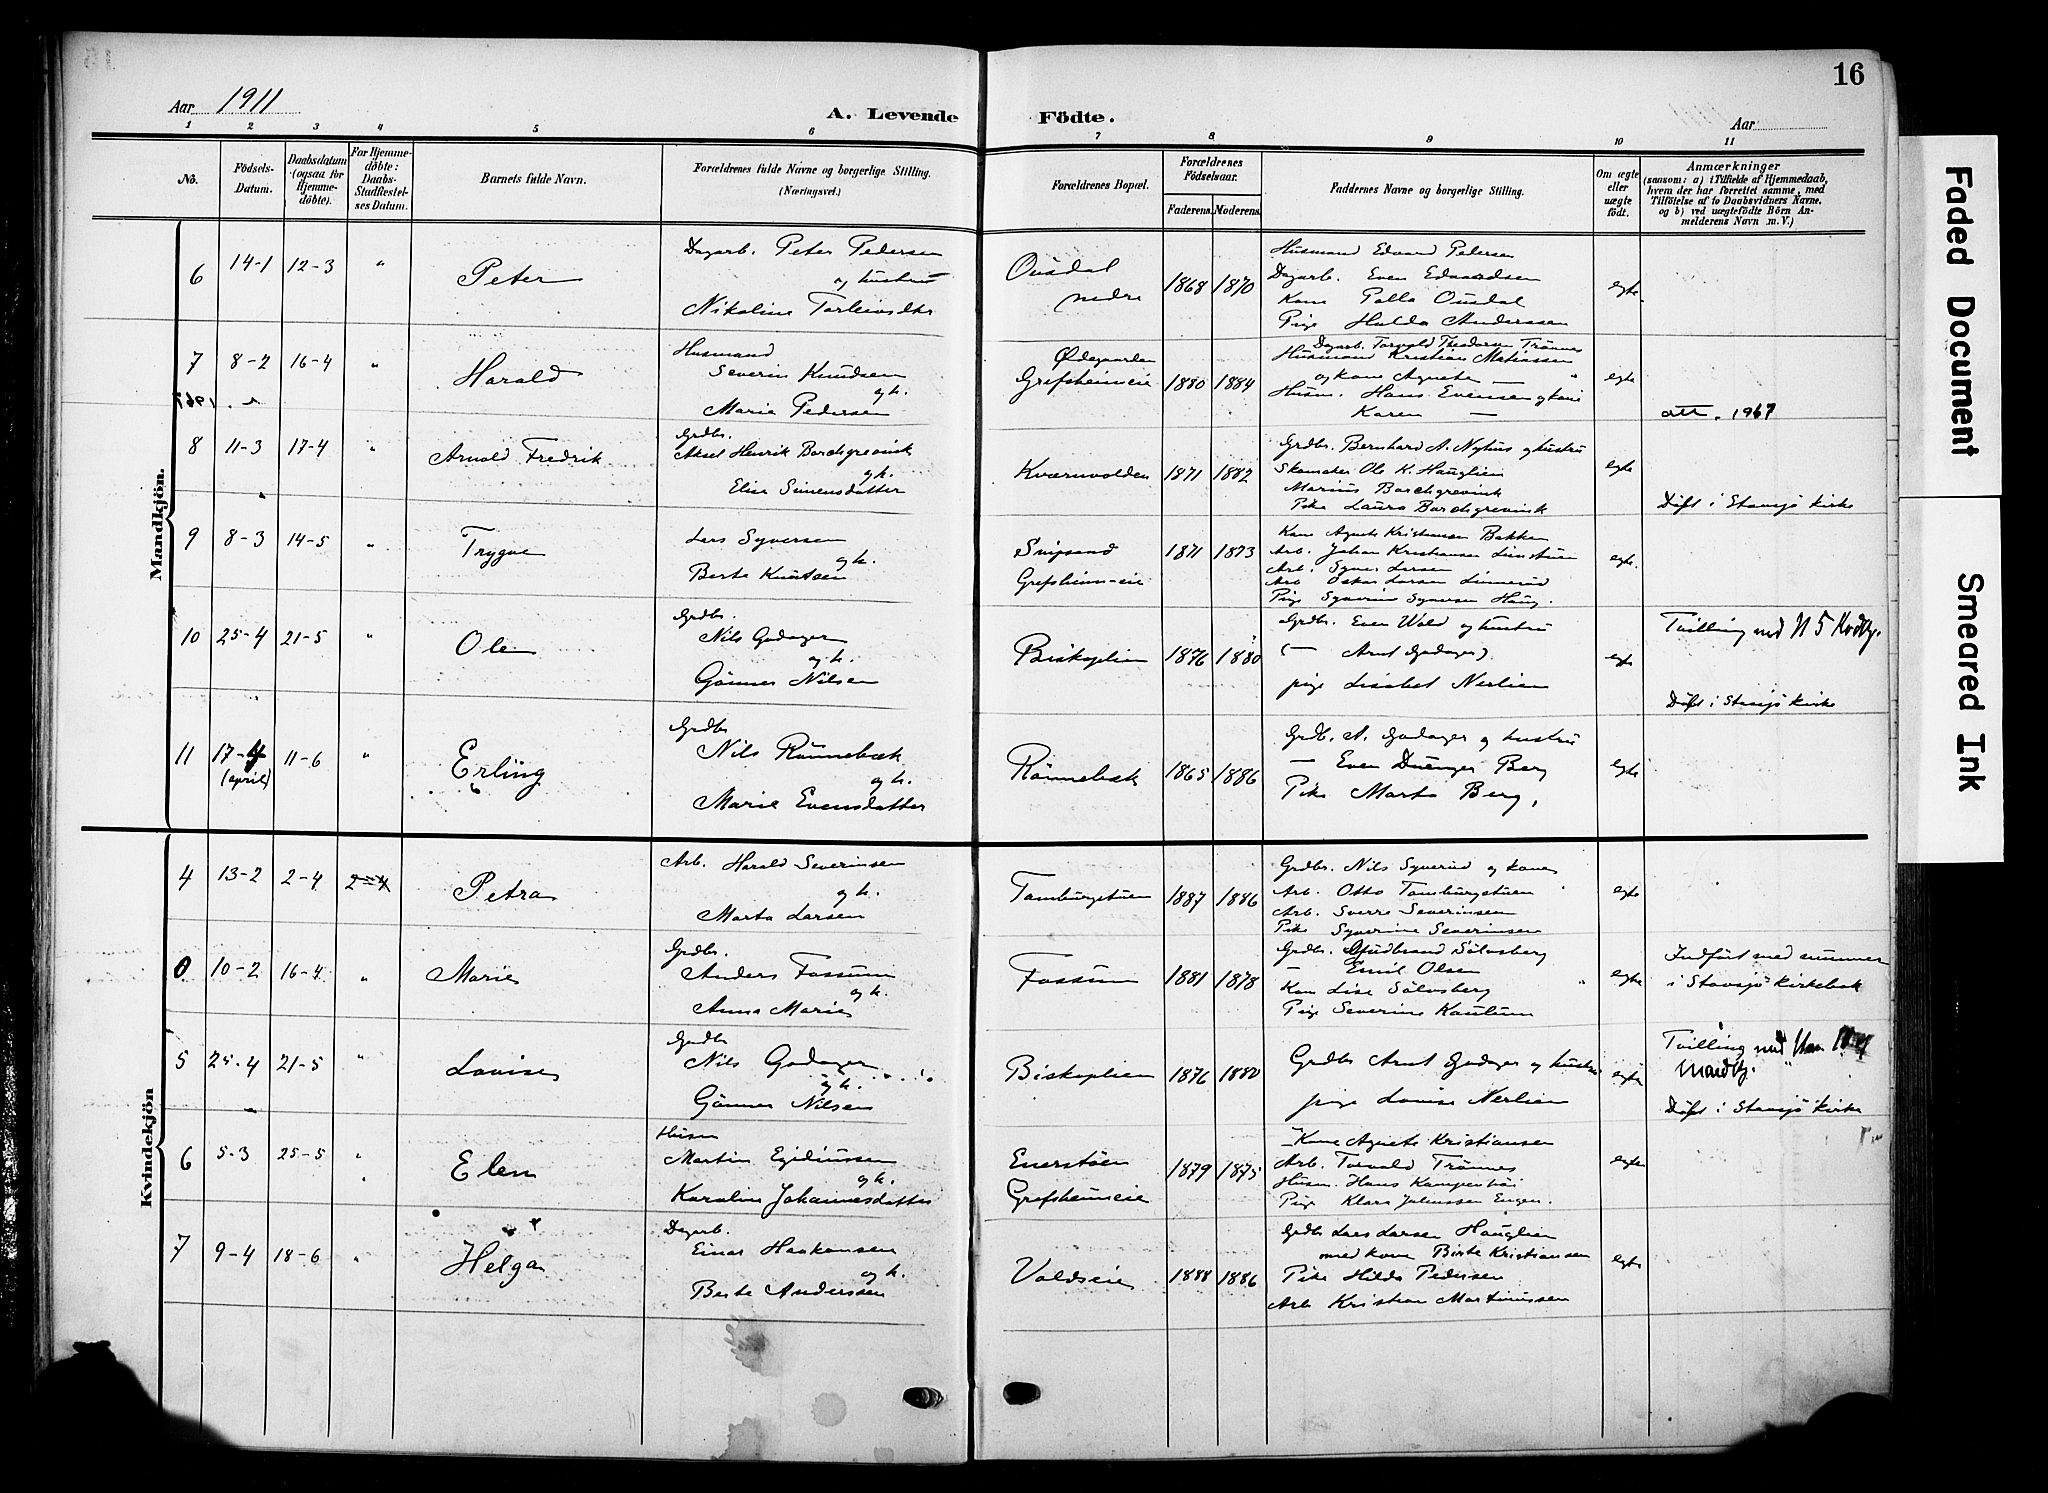 16
Aar 1911
A. Levende Födte.
Aar
1 2 3 4 5 6 7 8 9 10 11
No.
Födsels-Datum.
Daabsdatum (ogsaa for Hjemmedöbte).
For Hjemmedöbte: Daabs-Stadfæstelses Datum.
Barnets fulde Navn.
Forældrenes fulde Navne og borgerlige Stilling. (Næringsvei.)
Forældrenes Bopæl.
Forældrenes Födselsaar.
Faderens. Moderens.
Faddernes Navne og borgerlige Stilling.
Om ægte eller uægte födt.
Anmærkninger
(saasom: a) i Tilfælde af Hjemmedaab, hvem der har forrettet samme, med Tilföielse af to Daabsvidners Navne, og b) ved uægtefödte Börn Anmelderens Navn m. V.)
Mandkjön.
6 14-1 12-3 " Peter
Dagarb. Peter Pedersen
og hustru
Nikoline Torleivsdtr
Ousdal
nedre
1868 1870
Husmand Edvard Pedersen
Dagarb. Even Edvardsen
Kone Palla Ousdal
Pige Hulda Anderssen
egte
7 8-2 16-4 " Harald
Husmand
Severin Knudsen
og h.
Marie Pedersen
Ødegaarden
Grefsheimeie
1880 1884
Dagarb. Torvald Theodorsen Trönnes
Husmand Kristian Matiassen
og kone Agnete — "
Husm. Hans Evensen og kone
Karen —
egte
att. 1967
8 11-3 17-4 " Arnold Fredrik
Grdbr.
Aksel Henrik Borchgrevink
og h.
Elise Simensdatter
Kværnvolden
1871 1882
Grdbr. Bernhard A. Nyhus og hustru
Skomaker Ole K. Hauglien
Marius Borchgrevink
Pike Laura Borchgrevink
egte
Döft i Stavsjö kirke
9 8-3 14-5 " Trygve
Lars Syversen
og h.
Berte Knutsen
Snipsand
Grefsheim-eie
1871 1873
Kone Agnete Kristiansen Bakken
Arb. Johan Kristiansen Linstuen
Arb. Syver Larsen
Arb Oskar Larsen Linnerud
Pige Syverine Syversen Haug.
egte.
10 25-4 21-5 " Ole
Grdbr.
Nils Godager
og h.
Gönner Nilsen
Biskoplien
1876 1880
Grdbr. Even Wold og hustru
(— Arnt Godager)
pige Lisabet Nerlien
egte
Tvilling med N 5 Kvdkj.
Döft i Stavsjö kirke
11 17-4 (april) 11-6 " Erling
Grdbr
Nils Rönnebæk
og h.
Marie Evensdatter
Rönnebæk
1865 1886
Grdb. A. Godager og hustru
— Even Duenger Berg
Pike Marta Berg,
egte
Kvindekjön
4 13-2 2-4 2-4 Petra
Arb. Harald Severinsen
og h.
Marta Larsen
Tamburstuen
1887 1886
Grdbr. Nils Syverud og kone
Arb. Otto Tamburstuen
Arb. Sverre Severinsen
Pike Syverine Severinsen
egte
0 10-2 16-4 " Marie
Grdbr.
Anders Fossum
og h.
Anna Marie
Fossum
1881 1878
Grdbr. Gudbrand Sölvsberg
— Emil Olsen
Kone Lise Sölvsberg
Pige Severine Kautum
egte
Indfört med nummer
i Stavsjö kirkebok
5 25-4 21-5 " Lovise
Grdbr
Nils Godager
og h.
Gönner Nilsen
Biskoplien
1876 1880
Grdbr Arnt Godager og hustru
pige Lovise Nerlien
egte
Tvilling med
Mandkj.
Döft i Stavsjö kirke
6 5-3 25-5 " Elen
Husm
Martin Egidiussen
og h.
Karoline Johannesdatter
Enerstöen
Grefsheimeie
1879 1875
Kone Agnete Kristiansen
Arb. Torvald Trönnes
Husm. Hans Kampenhöi
Pige Klara Johnssen Engen.
egte
7 9-4 18-6 " Helga
Dagarb.
Einar Haakonsen
og h.
Berte Anderssen
Voldseie
1888 1886
Grdbr Lars Larsen Hauglien
med kone Birte Kristiansen
Pike Hilda Pedersen
Arb Kristian Martinussen
egte
Faded Document
Smeared Ink